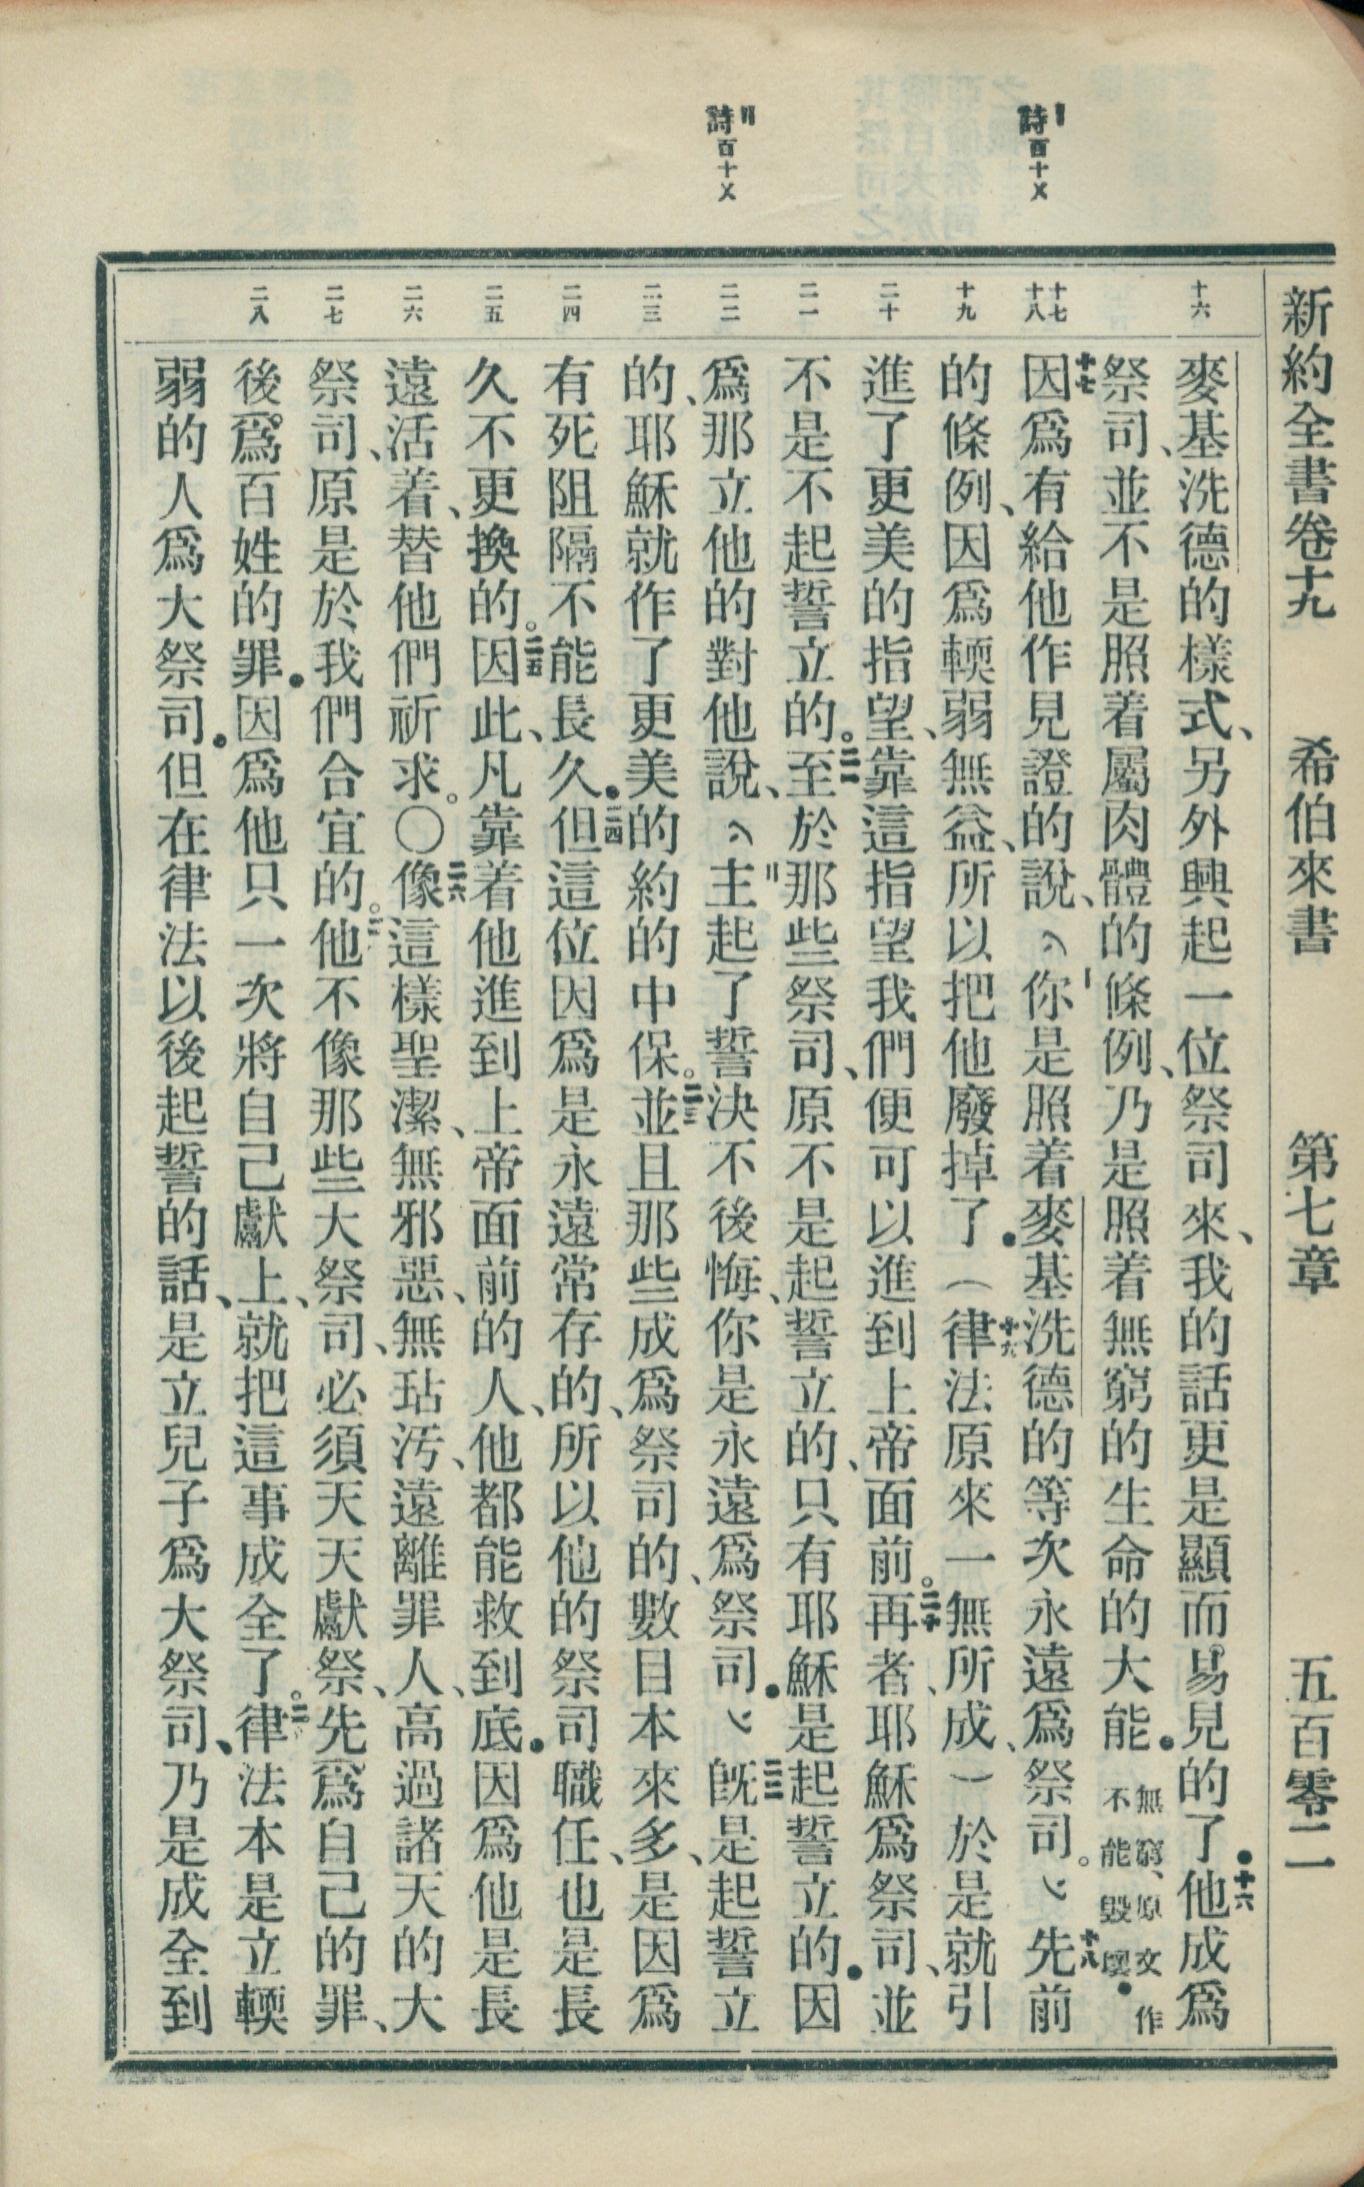 新約全書卷十九 希伯來書 第七章 五百零二
詩百十乂
詩百十乂
十六
十七
十八
十九
二十
二一
二二
二三
二四
二五
二六
二七
二八
麥基洗德的樣式、另外興起一位祭司來、我的話更是顯而易見的了•十六他成爲
祭司、並不是照着屬肉體的條例、乃是照着無窮的生命的大能•無窮、原文作不能毀壞•
十七因爲有給他作見證的說、你是照着麥基洗德的等次永遠爲祭司。十八先前
的條例、因爲輭弱無益、所以把他廢掉了•（十九律法原來一無所成、）於是就引
進了更美的指望、靠這指望我們便可以進到上帝面前。二十再者、耶穌爲祭司、並
不是不起誓立的。二一至於那些祭司、原不是起誓立的、只有耶穌是起誓立的•因
爲那立他的對他說、主起了誓決不後悔、你是永遠爲祭司•二二旣是起誓立
的、耶穌就作了更美的約的中保。二三並且那些成爲祭司的、數目本來多、是因爲
有死阻隔不能長久•二四但這位因爲是永遠常存的、所以他的祭司職任、也是長
久不更換的。二五因此、凡靠着他進到上帝面前的人、他都能救到底•因爲他是長
遠活着、替他們祈求。〇二六像這樣聖潔、無邪惡、無玷汚、遠離罪人、高過諸天的大
祭司、原是於我們合宜的。他不像那些大祭司、必須天天獻祭、先爲自己的罪、
後爲百姓的罪•因爲他只一次將自己獻上、就把這事成全了。律法本是立輭
弱的人爲大祭司•但在律法以後起誓的話、是立兒子爲大祭司、乃是成全到